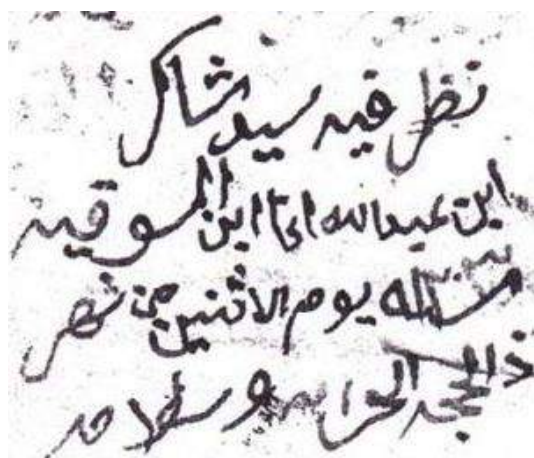 نظر فيه سيد شاكر
ابن عبدالله اغا ابن السوقيه
سنه يوم الاثنين من شهر
ذالحجه الحرام وسلام